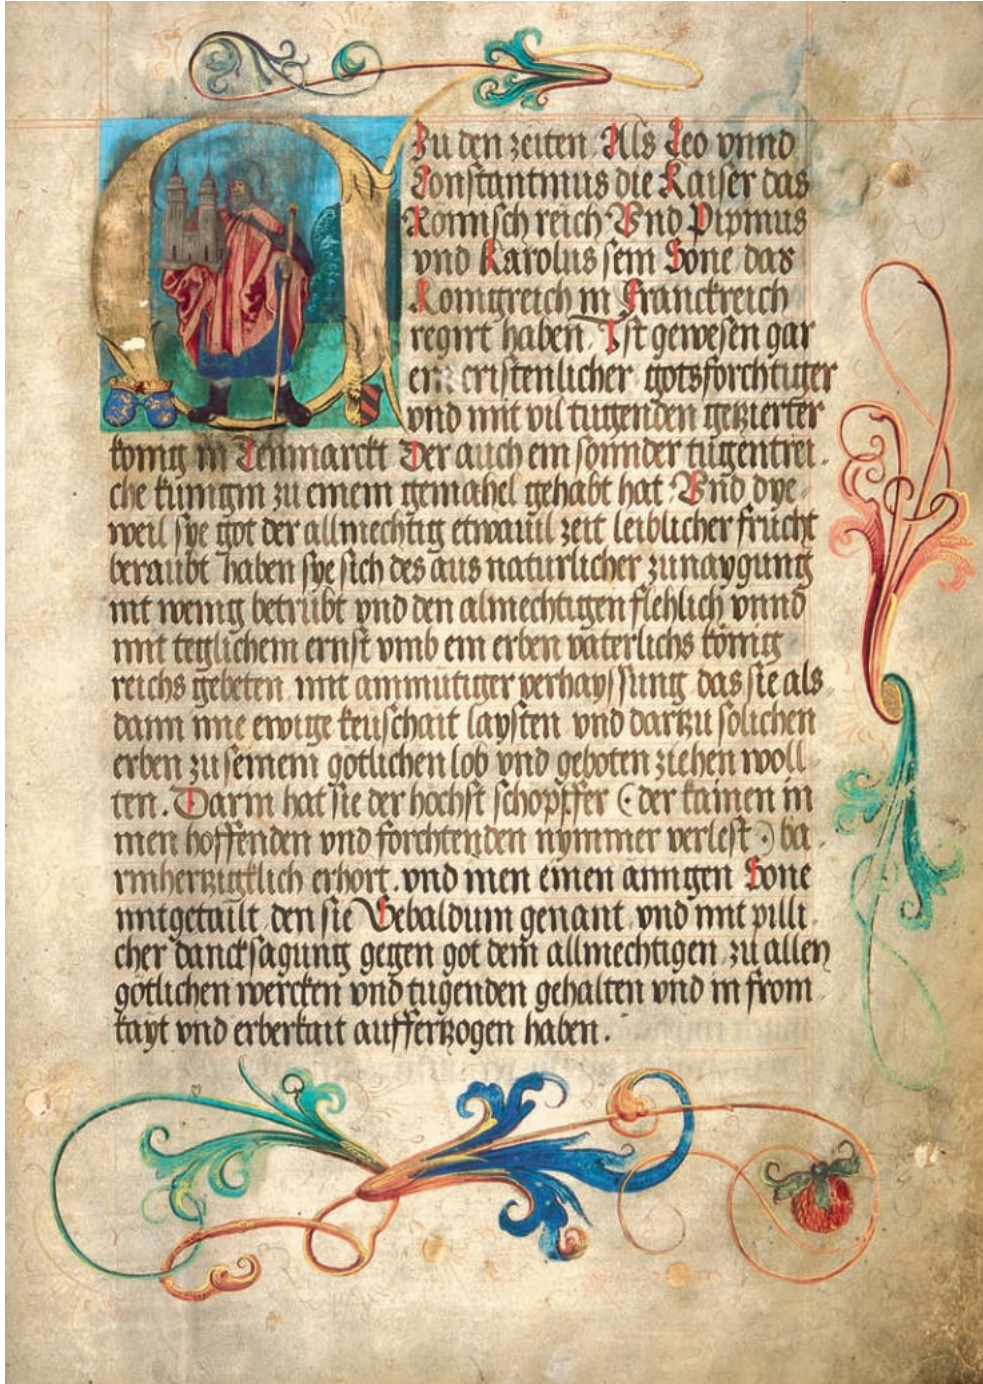 Zu den zeiten Als Leo vnnd
Constantinus die Kaiser das
Romisch reich Vnd Pipinus
vnd Karolus sein Sone das
Konigreich in Franckreich
regirt haben Ist gewesen gar
ein cristenlicher gotsforchtiger
vnd mit vil tugenden getzierter
konig in Tenmarckt Der auch ein sonnder tugentrei
che künigin zu einem gemahel gehabt hat Vnd dye
weil sye got der allmechtig etwauil zeit leiblicher frücht
beraubt haben sye sich des aus naturlicher zunaygung
nit wenig betrübt vnd den almechtigen flehlich vnnd
mit teglichem ernst vmb ein erben vaterlichs könig
reichs gebeten mit anmutiger verhayssung das sie als
dann ime ewige keuschait laysten vnd dartzu solichen
erben zu seinem götlichen lob vnd geboten ziehen woll
ten. Darin hat sie der hochst schopffer (der kainen in
inen hoffenden vnd forchtenden nymmer verlest) ba
rmhertzigklich erhort. vnd inen einen ainigen Sone
mitgetailt den sie Sebaldum genant vnd mit pilli
cher dancksagung gegen got dem allmechtigen zu allen
götlichen wercken vnd tugenden gehalten vnd in from
kayt vnd erberkait aufferzogen haben.